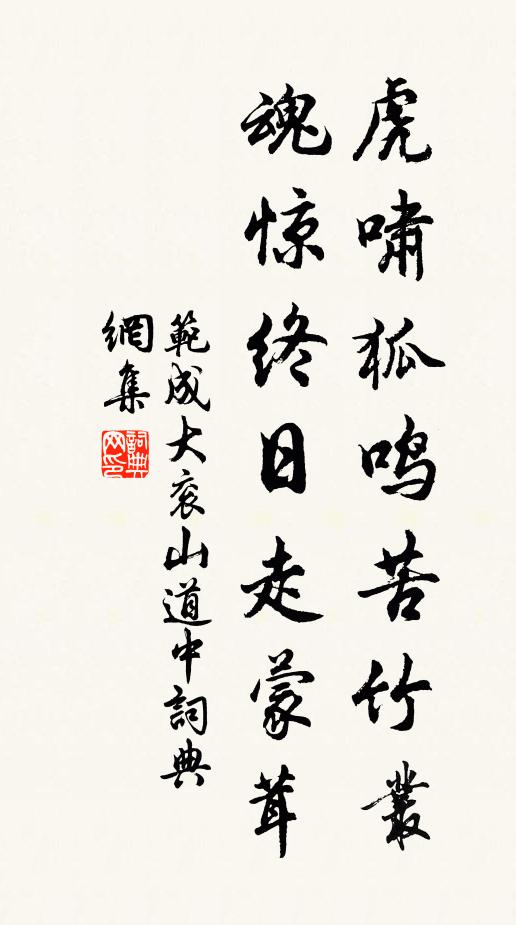 虎啸狐鸣苦竹叢
魂惊终日走蒙茸
範成大衮山道中詞典
網集
詞典网印